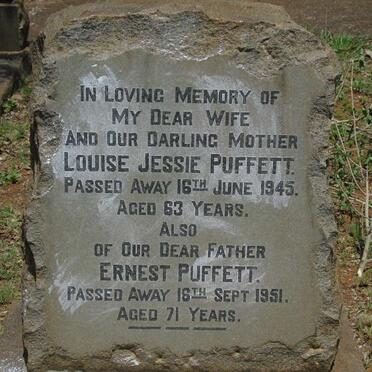 IN LOVING MEMORY OF
MY DEAR WIFE
AND OUR DARLING MOTHER
LOUISE JESSIE PUFFETT.
PASSED AWAY 16TH JUNE 1945.
AGED 63 YEARS.
ALSO
OF OUR DEAR FATHER
ERNEST PUFFETT.
PASSED AWAY 16TH SEPT 1951.
AGED 71 YEARS.